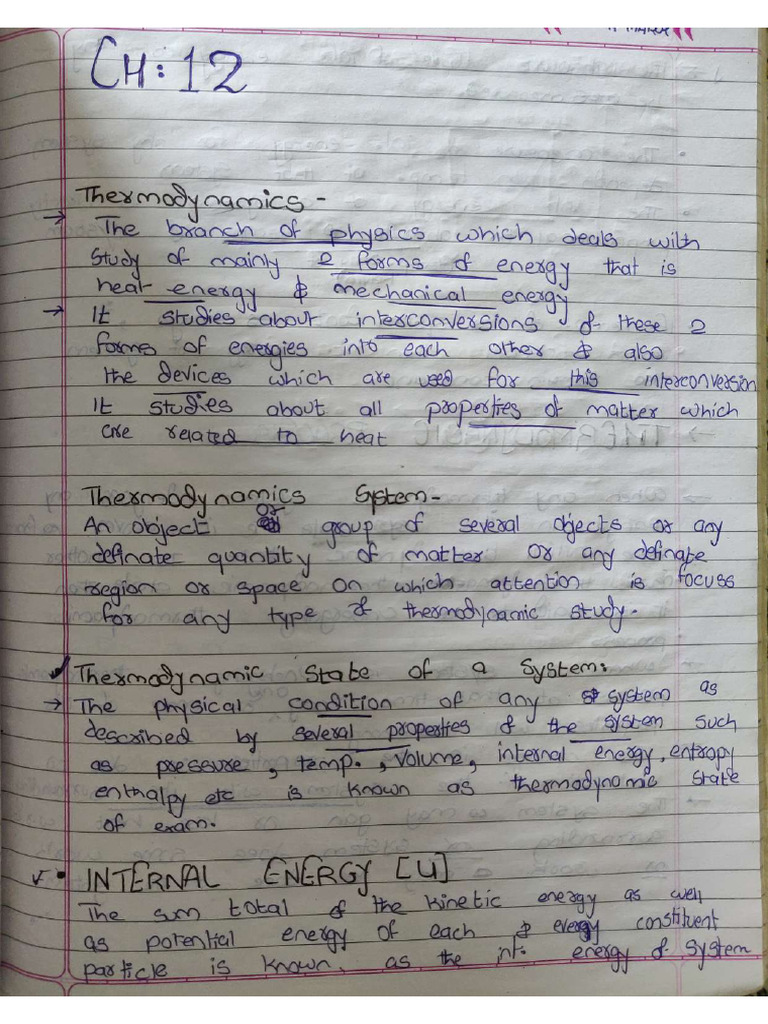 CH: 12
Thermodynamics -
→ The branch of physics which deals with
study of mainly 2 forms of energy that is
heat energy & mechanical energy
→ It studies about interconversions of these 2
forms of energies into each other & also
the devices which are used for this interconversion
It studies about all properties of matter which
are related to heat
Thermodynamics System -
An object or group of several objects or any
definate quantity of matter or any definate
region or space on which attention is focuss
for any type of thermodynamic study.
✓ Thermodynamic State of a System:
→ The physical condition of any system as
described by several properties of the system such
as pressure, temp., volume, internal energy, entropy
enthalpy etc is known as thermodynamic state
of exam.
✓ • INTERNAL ENERGY [U]
The sum total of the kinetic energy as well
as potential energy of each & every constituent
particle is known. as the int. energy of system